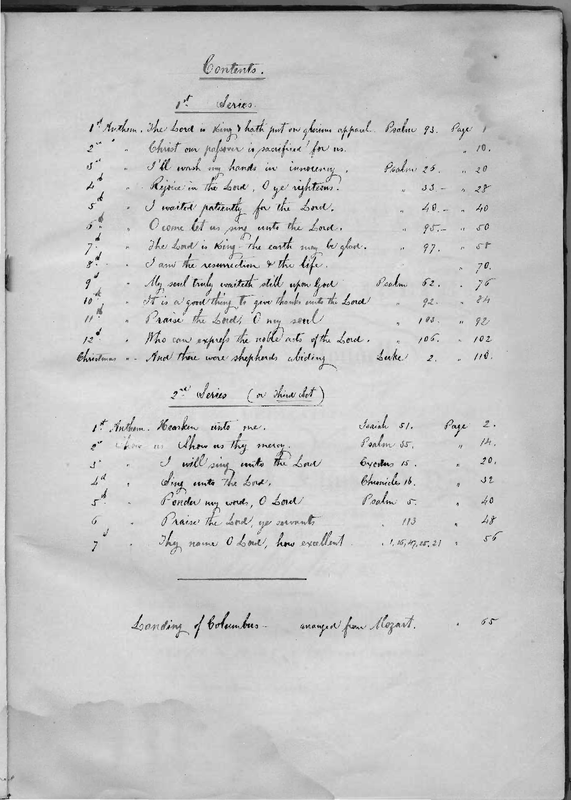 Contents.
1st Series
1st Anthem. The Lord is King & hath put on glorious apparel. Psalm 93. Page 1
2nd " Christ our passover is sacrificed for us. " 10.
3rd " I'll wash my hands in innocency. Psalm 26. " 20
4th " Rejoice in the Lord, O ye righteous. " 33 — " 28
5th " I waited patiently for the Lord. " 40. — " 40
6th " O come let us sing unto the Lord. " 95. — " 50
7th " The Lord is King the earth may be glad. " 97. " 58
8th " I am the resurrection & the life. " 70.
9th " My soul truly waiteth still upon God Psalm 62. " 76
10th " It is a good thing to give thanks unto the Lord " 92. " 84
11th " Praise the Lord, O my soul " 103. " 92
12th " Who can express the noble acts of the Lord. " 106. " 102
Christmas " And there were shepherds abiding Luke 2. " 110.
2nd Series (or Third Set)
1st Anthem. Hearken unto me. Isaiah 51. Page 2.
2nd Show us Show us thy mercy. Psalm 85. " 14.
3rd " I will sing unto the Lord Exodus 15. " 20.
4th " Sing unto the Lord. Chronicles 16. " 32
5th " Ponder my words, O Lord Psalm 5. " 40
6 " Praise the Lord, ye servants " 113 " 48
7 " Thy name O Lord, how excellent. " 56
Landing of Columbus — arranged from Mozart. " 65